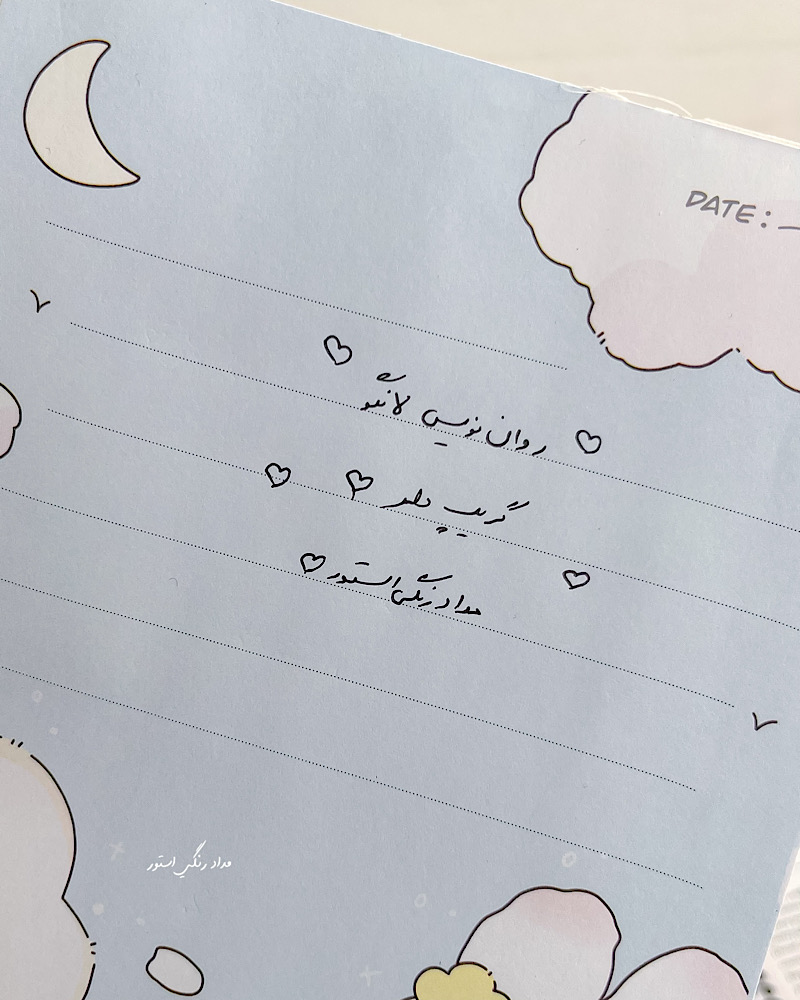 DATE:
روان نویس لانگو
گریپ دار
مداد رنگی استور
مداد رنگی استور